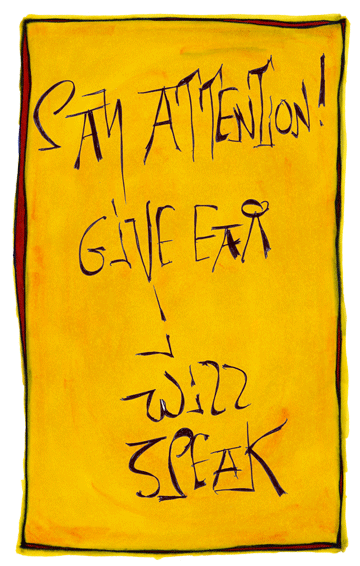 SAY ATTENTION!
GIVE EAR
i
will
SPEAK